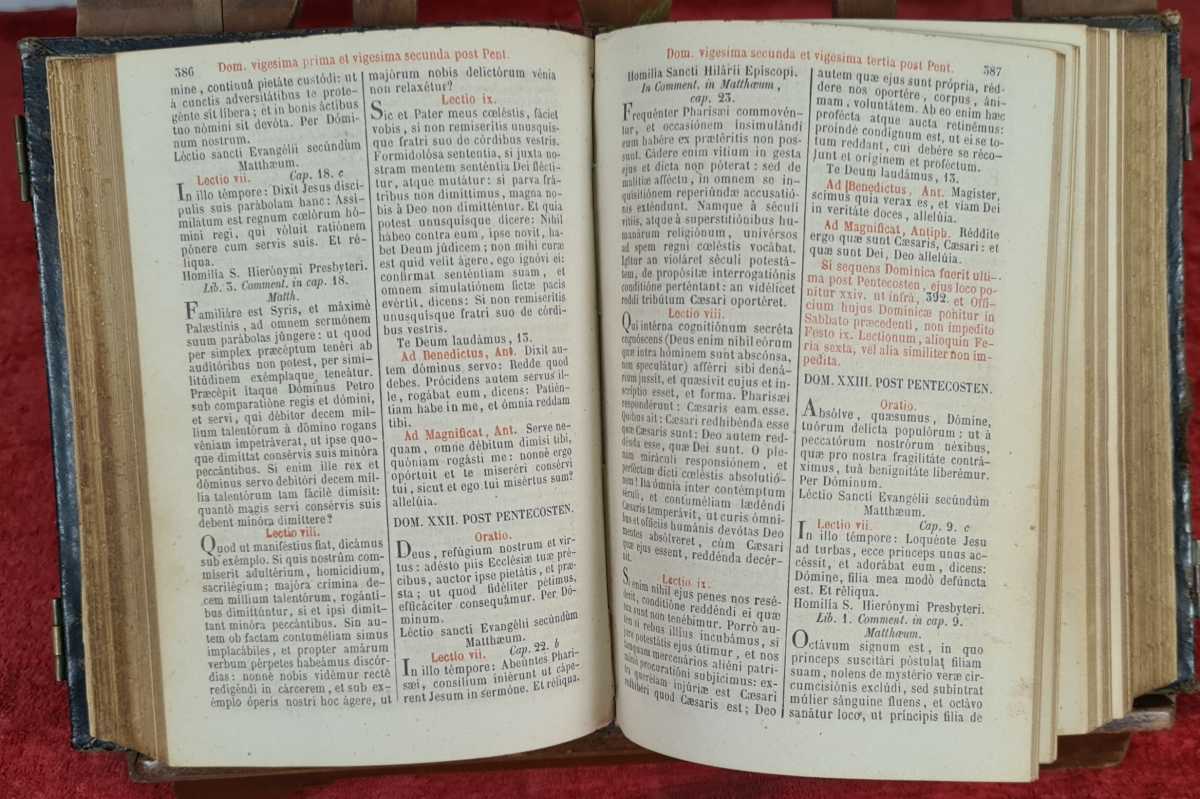 386
Dom. vigesima prima et vigesima secunda post Pent.
mine, continuâ pietáte custódi: ut
à cunctis adversitátibus te prote-
génte sit líbera; et in bonis áctibus
tuo nómini sit devóta. Per Dómi-
num nostrum.
Léctio sancti Evangélii secúndùm
Matthæum.
Lectio vii. Cap. 18. c
In illo témpore: Dixit Jesus discí-
pulis suis parábolam hanc: Assi-
milátum est regnum cœlórum hó-
mini regi, qui vóluit ratiónem
pónere cum servis suis. Et ré-
liqua.
Homilía S. Hierónymi Presbyteri.
Lib. 3. Comment. in cap. 18.
Matth.
Familiáre est Syris, et máximè
Palæstínis, ad omnem sermónem
suum parábolas júngere: ut quod
per simplex præcéptum tenéri ab
auditóribus non potest, per simi-
litúdinem exémplaque teneátur.
Præcépit ítaque Dóminus Petro
sub comparatióne regis et dómini,
et servi, qui débitor decem mil-
lium talentórum à dómino rogans
véniam impetráverat, ut ipse quo-
que dimíttat consérvis suis minóra
peccántibus. Si enim ille rex et
dóminus servo debitóri decem mil-
lia talentórum tam fácilè dimísit:
quantò magis servi consérvis suis
debent minóra dimíttere?
Lectio viii.
Quod ut maniféstius fiat, dicámus
sub exémplo. Si quis nostrûm com-
míserit adultérium, homicídium,
sacrilégium; majóra crímina de-
cem míllium talentórum, rogánti-
bus dimittúntur, si et ipsi dimít-
tant minóra peccántibus. Sin au-
tem ob factam contuméliam simus
implacábiles, et propter amárum
verbum pérpetes habeámus discór-
dias: nonne nobis vidémur rectè
redigéndi in cárcerem, et sub ex-
émplo óperis nostri hoc ágere, ut
majórum nobis delictórum vénia
non relaxétur?
Lectio ix.
Sic et Pater meus cœléstis, fáciet
vobis, si non remiséritis unusquís-
que fratri suo de córdibus vestris.
Formidolósa senténtia, si juxta no-
stram mentem senténtia Dei flécti-
tur, atque mutátur: si parva frá-
tribus non dimíttimus, magna no-
bis à Deo non dimitténtur. Et quia
potest unusquísque dícere: Nihil
hábeo contra eum, ipse novit, ha-
bet Deum júdicem; non mihi curæ
est quid velit ágere, ego ignóvi ei:
confírmat senténtiam suam, et
omnem simulatiónem fictæ pacis
evértit, dicens: Si non remiséritis
unusquísque fratri suo de córdi-
bus vestris.
Te Deum laudámus, 13.
Ad Benedictus, Ant. Dixit au-
tem dóminus servo: Redde quod
debes. Prócidens autem servus il-
le, rogábat eum, dicens: Patién-
tiam habe in me, et ómnia reddam
tibi.
Ad Magnificat, Ant. Serve ne-
quam, omne débitum dimísi tibi,
quóniam rogásti me: nonnè ergo
opórtuit et te miseréri consérvi
tui, sicut et ego tui misértus sum?
allelúia.
DOM. XXII. POST PENTECOSTEN.
Oratio.
Deus, refúgium nostrum et vir-
tus: adésto piis Ecclésiæ tuæ pré-
cibus, auctor ipse pietátis, et præ-
sta; ut quod fidéliter pétimus,
efficáciter consequámur. Per Dó-
minum.
Léctio sancti Evangélii secúndùm
Matthæum.
Lectio vii. Cap. 22. b
In illo témpore: Abeúntes Phari-
sǽi, consílium iniérunt ut cápe-
rent Jesum in sermóne. Et réliqua.
Dom. vigesima secunda et vigesima tertia post Pent.
387
Homilía Sancti Hilárii Episcopi.
In Comment. in Matthæum,
cap. 23.
Frequénter Pharisæi commovén-
tur, et occasiónem insimulándi
eum habére ex prætéritis non pos-
sunt. Cádere enim vítium in gesta
ejus et dicta non póterat: sed de
malítiæ afféctu, in omnem se in-
quisitiónem reperiúndæ accusatió-
nis exténdunt. Namque à séculi
vítiis, atque à superstitiónibus hu-
manárum religiónum, univérsos
ad spem regni cœléstis vocábat.
Igitur an violáret séculi potestá-
tem, de propósitæ interrogatiónis
conditióne perténtant: an vidélicet
reddi tribútum Cæsari oportéret.
Lectio viii.
Qui intérna cognitiónum secréta
cognóscens (Deus enim nihil eórum
quæ intra hóminem sunt abscónsa,
non speculátur) afférri sibi dená-
rium jussit, et quæsívit cujus et in-
scríptio esset, et forma. Pharisæi
respondérunt: Cæsaris eam esse.
Quibus ait: Cæsari redhibénda esse
quæ Cæsaris sunt: Deo autem red-
dénda esse, quæ Dei sunt. O ple-
nam miráculi responsiónem, et
perféctam dicti cœléstis absolutió-
nem! Ita ómnia inter contémptum
séculi, et contuméliam lædéndi
Cæsaris temperávit, ut curis ómni-
bus et offíciis humánis devótas Deo
mentes absólveret, cùm Cæsari
quæ ejus essent, reddénda decér-
nit.
Lectio ix.
Si enim nihil ejus penes nos resé-
derit, conditióne reddéndi ei quæ
sua sunt non tenébimur. Porrò au-
tem si rebus illíus incubámus, si
jure potestátis ejus útimur, et nos
tamquam mercenários aliéni patri-
mónii procuratióni subjícimus: ex-
tra queréiam injúriæ est Cæsari
redhibéri quod Cæsaris est; Deo
autem quæ ejus sunt própria, réd-
dere nos oportére, corpus, áni-
mam, voluntátem. Ab eo enim hæc
profécta atque aucta retinémus:
proinde condígnum est, ut ei se to-
tum reddant, cui debére se réco-
lunt et oríginem et proféctum.
Te Deum laudámus, 13.
Ad Benedictus, Ant. Magister,
scimus quia verax es, et viam Dei
in veritáte doces, allelúia.
Ad Magnificat, Antiph. Réddite
ergo quæ sunt Cæsaris, Cæsari: et
quæ sunt Dei, Deo allelúia.
Si sequens Dominica fuerit ulti-
ma post Pentecosten, ejus loco po-
nitur xxiv. ut infrà, 392. et Offi-
cium hujus Dominicæ ponitur in
Sabbato præcedenti, non impedito
Festo ix. Lectionum, alioquin Fe-
ria sexta, vel alia similiter non im-
pedita.
DOM. XXIII. POST PENTECOSTEN.
Oratio.
Absólve, quæsumus, Dómine,
tuórum delícta populórum: ut à
peccatórum nostrórum néxibus,
quæ pro nostra fragilitáte contrá-
ximus, tuâ benignitáte liberémur.
Per Dóminum.
Léctio Sancti Evangélii secúndùm
Matthæum.
Lectio vii. Cap. 9. c
In illo témpore: Loquénte Jesu
ad turbas, ecce princeps unus ac-
céssit, et adorábat eum, dicens:
Dómine, fília mea modò defúncta
est. Et réliqua.
Homilía S. Hierónymi Presbyteri.
Lib. 1. Comment. in cap. 9.
Matthæum.
Octávum signum est, in quo
princeps suscitári póstulat fíliam
suam, nolens de mystério veræ cir-
cumcisiónis exclúdi, sed subíntrat
múlier sánguine fluens, et octávo
sanátur loco, ut príncipis fília de